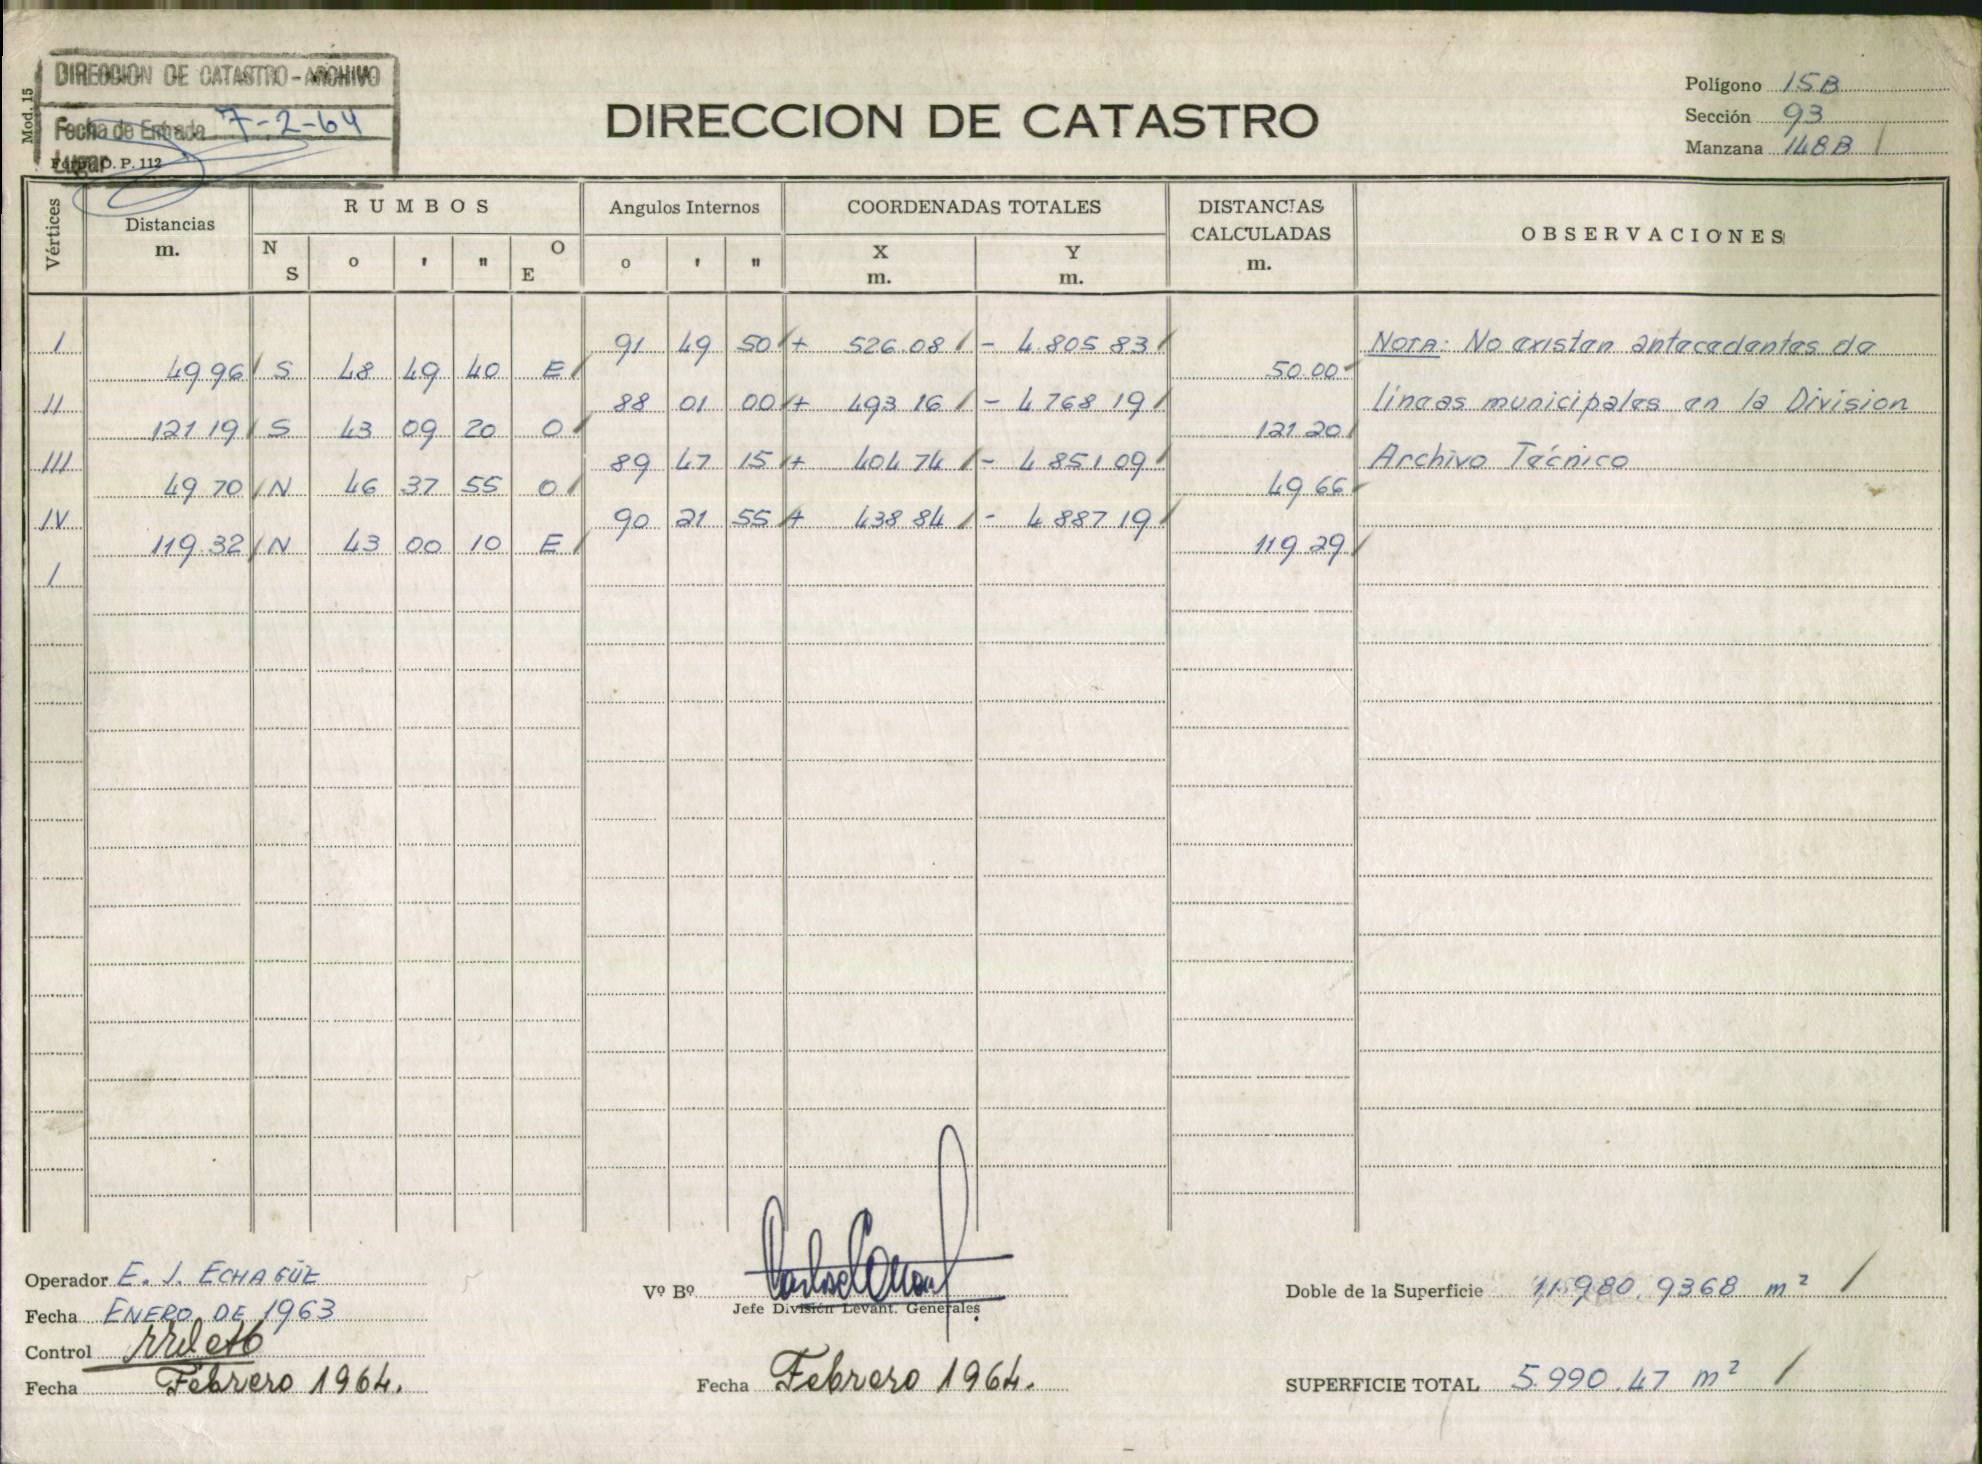 DIRECCION DE CATASTRO - ARCHIVO
Fecha de Entrada 7-2-64
Lugar
O. P. 112
Mod. 15
DIRECCION DE CATASTRO
Polígono 15B
Sección 93
Manzana 148B
Vértices
Distancias m.
RUMBOS
N S ° ' " O E
Angulos Internos
° ' "
COORDENADAS TOTALES
X m. Y m.
DISTANCIAS CALCULADAS m.
OBSERVACIONES
I 91 49 50 + 526.08 - 4.805 83 Nota: No existen antecedentes de
49.96 S 48 49 40 E 50.00
II 88 01 00 + 493 16 - 4 768 19 líneas municipales en la Division
121 19 S 43 09 20 O 121 20
III 89 47 15 + 404 74 - 4 851 09 Archivo Técnico
49 70 N 46 37 55 O 49 66
IV 90 21 55 + 438 84 - 4 887 19
119.32 N 43 00 10 E 119 29
I
Operador E. J. ECHAGÜE
Fecha ENERO DE 1963
Control
Fecha Febrero 1964.
Vº Bº
Jefe División Levant. Generales
Fecha Febrero 1964.
Doble de la Superficie 11.980.9368 m²
SUPERFICIE TOTAL 5.990.47 m²